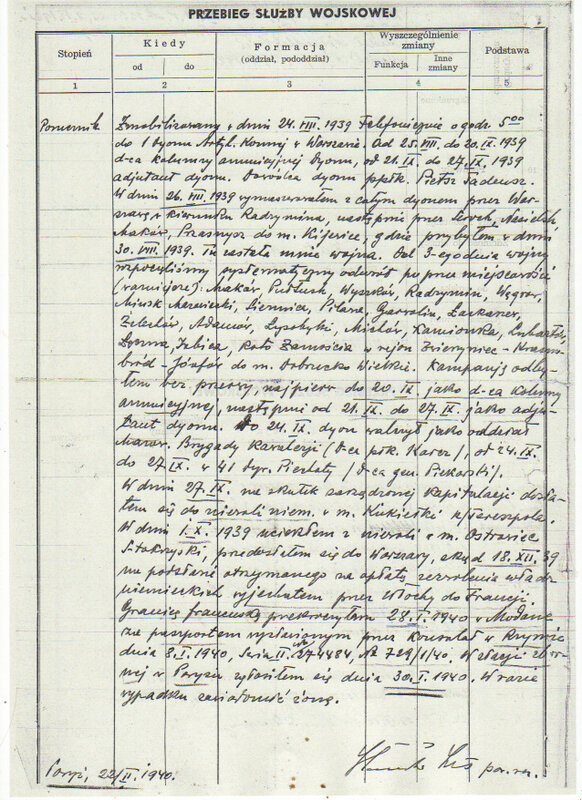 PRZEBIEG SŁUŻBY WOJSKOWEJ
Stopień
Kiedy
od
do
Formacja
(oddział, pododdział)
Wyszczególnienie
zmiany
Funkcja
Inne
zmiany
Podstawa
1
2
3
4
5
Porucznik
Zmobilizowany w dniu 24.VIII.1939 telefonicznie o godz. 5⁰⁰
do 1 Dyonu Artyl. Konnej w Warszawie. Od 25.VIII. do 20.IX.1939
d-ca kolumny amunicyjnej dyonu, od 21.IX. do 27.IX.1939
adjutant dyonu. Dowódca dyonu ppłk. Pietsz Tadeusz.
W dniu 26.VIII.1939 wymaszerowałem z całym dyonem przez War-
szawę w kierunku Radzymina, następnie przez Serock, Nasielsk
Maków, Przasnysz do m. gdzie przybyłem w dniu
30.VIII.1939. Tu zastała mnie wojna. Od 3-ego dnia wojny
rozpoczęliśmy systematyczny odwrót po przez miejscowości
Maków, Pułtusk, Wyszków, Radzymin, Węgrów,
Mińsk Mazowiecki, Siennica, Pilawa, Garwolin, Łaskarzew,
Żelechów, Adamów, Łysobyki, Michów, Kamionka, Lubartów,
Izbica, koło Zamościa w rejon Zwierzyniec - Krasno-
bród - Józefów do m. Kampanję odby-
łem bez przerwy, najpierw do 20.IX. jako d-ca kolumny
amunicyjnej, następnie od 21.IX. do 27.IX. jako adju-
tant dyonu. Do 24.IX. dyon walczył jako oddział
Mazow. Brygady Kawalerji (d-ca płk. Karcz), od 24.IX.
do 27.IX. w 41 Dyw. Piechoty / d-ca gen. Piekarski /.
W dniu 27.IX. na skutek zarządzonej kapitulacji dosta-
łem się do niewoli niem. w m.
W dniu 1.X.1939 uciekłem z niewoli w m. Ostrowiec
przedostałem się do Warszawy, skąd 18.XII.39
na podstawie otrzymanego za opłatą zezwolenia władz
niemieckich wyjechałem przez Włochy do Francji.
Granicę francuską przekroczyłem 28.I.1940 w Modane
za paszportem wydanym przez Konsulat w Rzymie
dnia 8.I.1940, Seria II. 274484, № 729/1/40. W stacji zbor-
nej w Paryżu zgłosiłem się dnia 30.I.1940. W razie
wypadku zawiadomić żonę.
Paryż, 22/II.1940.
por. rez.